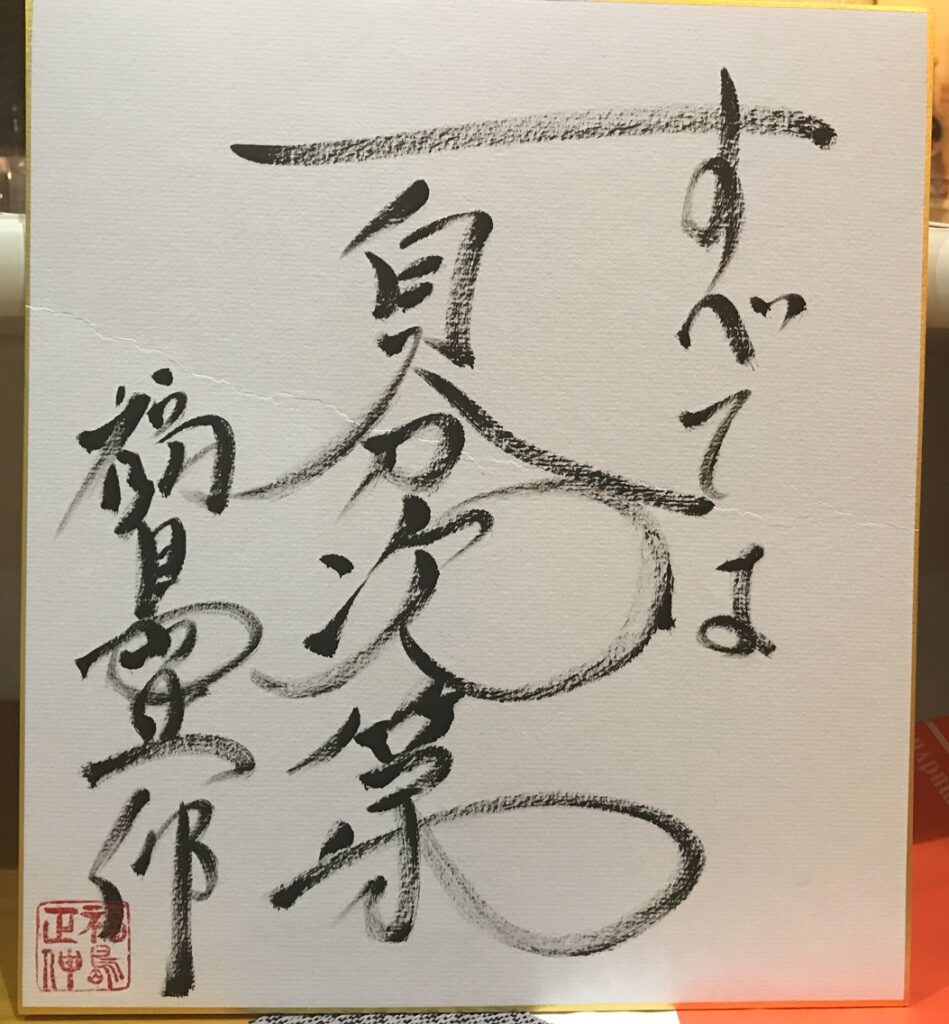 すべては
自分次第
福島正伸
福島
正伸